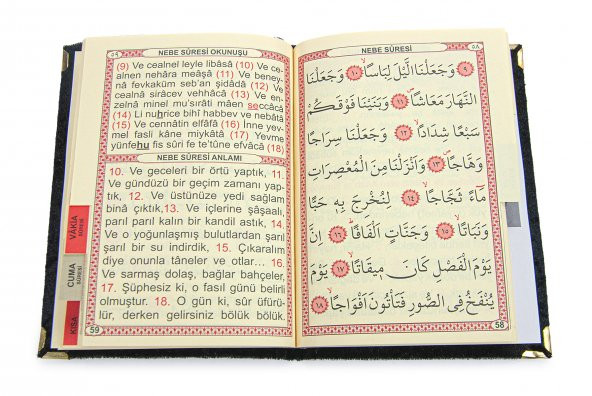 ٥٩
NEBE SÛRESİ OKUNUŞU
(9) Ve cealnel leyle libâsâ (10) Ve ce-
alnen nehâra meâşâ (11) Ve beney-
nâ fevkaküm seb'an şidâdâ (12) Ve
cealnâ sirâcev vehhâcâ (13) Ve en-
zelnâ minel mu'srâti mâen seccâcâ
(14) Li nuhrice bihî habbev ve nebâtâ
(15) Ve cennâtin elfâfâ (16) İnne yev-
mel fasli kâne miykâtâ (17) Yevme
yünfehu fis sûri fe te'tûne efvâcâ (18)
NEBE SÛRESİ ANLAMI
10. Ve geceleri bir örtü yaptık, 11.
Ve gündüzü bir geçim zamanı yap-
tık, 12. Ve üstünüze yedi sağlam
binâ çıktık,13. Ve içlerine şâşaalı,
parıl parıl parlayan bir kandil astık, 14.
Ve o yoğunlaşmış bulutlardan şarıl
şarıl bir su indirdik. 15. Çıkaralım
diye onunla tâneler ve otlar... 16.
Ve sarmaş dolaş, bağlar bahçeler,
17. Şüphesiz ki, o fasıl günü belirli
olmuştur. 18. O gün ki, sûr üfürü-
lür, derken gelirsiniz bölük bölük.
59
VÂKIA
SÛRESİ
CUMA
SÛRESİ
KISA
NEBE SÛRESİ
٥٨
٩ وَجَعَلْنَا الَّيْلَ لِبَاسًا ١٠ وَجَعَلْنَا
النَّهَارَ مَعَاشًا ١١ وَبَنَيْنَا فَوْقَكُمْ
سَبْعًا شِدَادًا ١٢ وَجَعَلْنَا سِرَاجًا
وَهَّاجًا ١٣ وَاَنْزَلْنَا مِنَ الْمُعْصِرَاتِ
مَاءً ثَجَّاجًا ١٤ لِنُخْرِجَ بِهِ حَبًّا
وَنَبَاتًا ١٥ وَجَنَّاتٍ اَلْفَافًا ١٦ اِنَّ
يَوْمَ الْفَصْلِ كَانَ مِيقَاتًا ١٧ يَوْمَ
يُنْفَخُ فِى الصُّورِ فَتَأْتُونَ اَفْوَاجًا ١٨
58